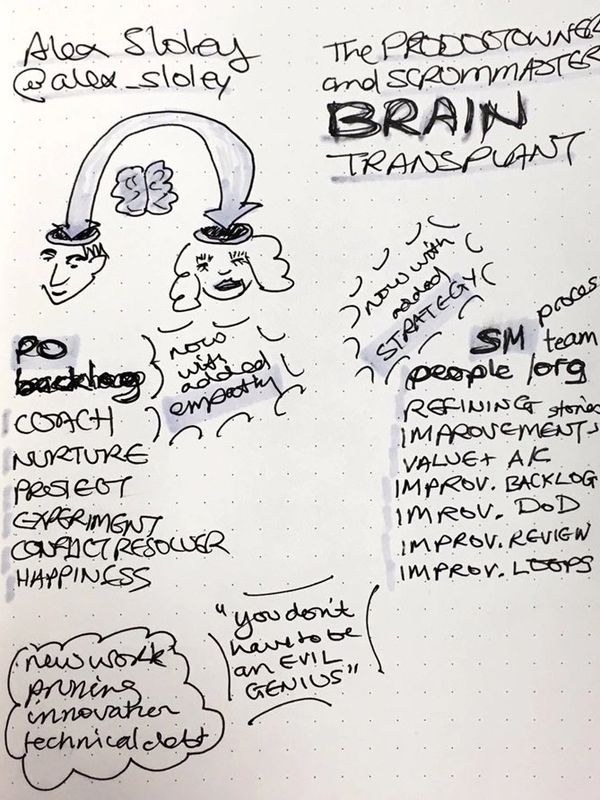 Alex Sloley
@alex_sloley
The PRODUCTOWNER
and SCRUMMASTER
BRAIN
TRANSPLANT
now with
added
STRATEGY
PO
backlog
now
with
added
empathy
COACH
NURTURE
PROTECT
EXPERIMENT
CONFLICT RESOLVER
HAPPINESS
SM
process
team
people/org
REFINING stories
IMPROVEMENTS
VALUE + A/C
IMPROV. BACKLOG
IMROV. DoD
IMPROV. REVIEW
IMPROV. LOOPS
"you don't
have to be
an EVIL
GENIUS"
new work
pruning
innovation
technical debt